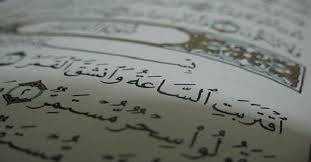 ٱقْتَرَبَتِ ٱلسَّاعَةُ وَٱنشَقَّ ٱلْقَمَرُ
لُوا۟ سِحْرٌ مُّسْتَمِرٌّ ٢